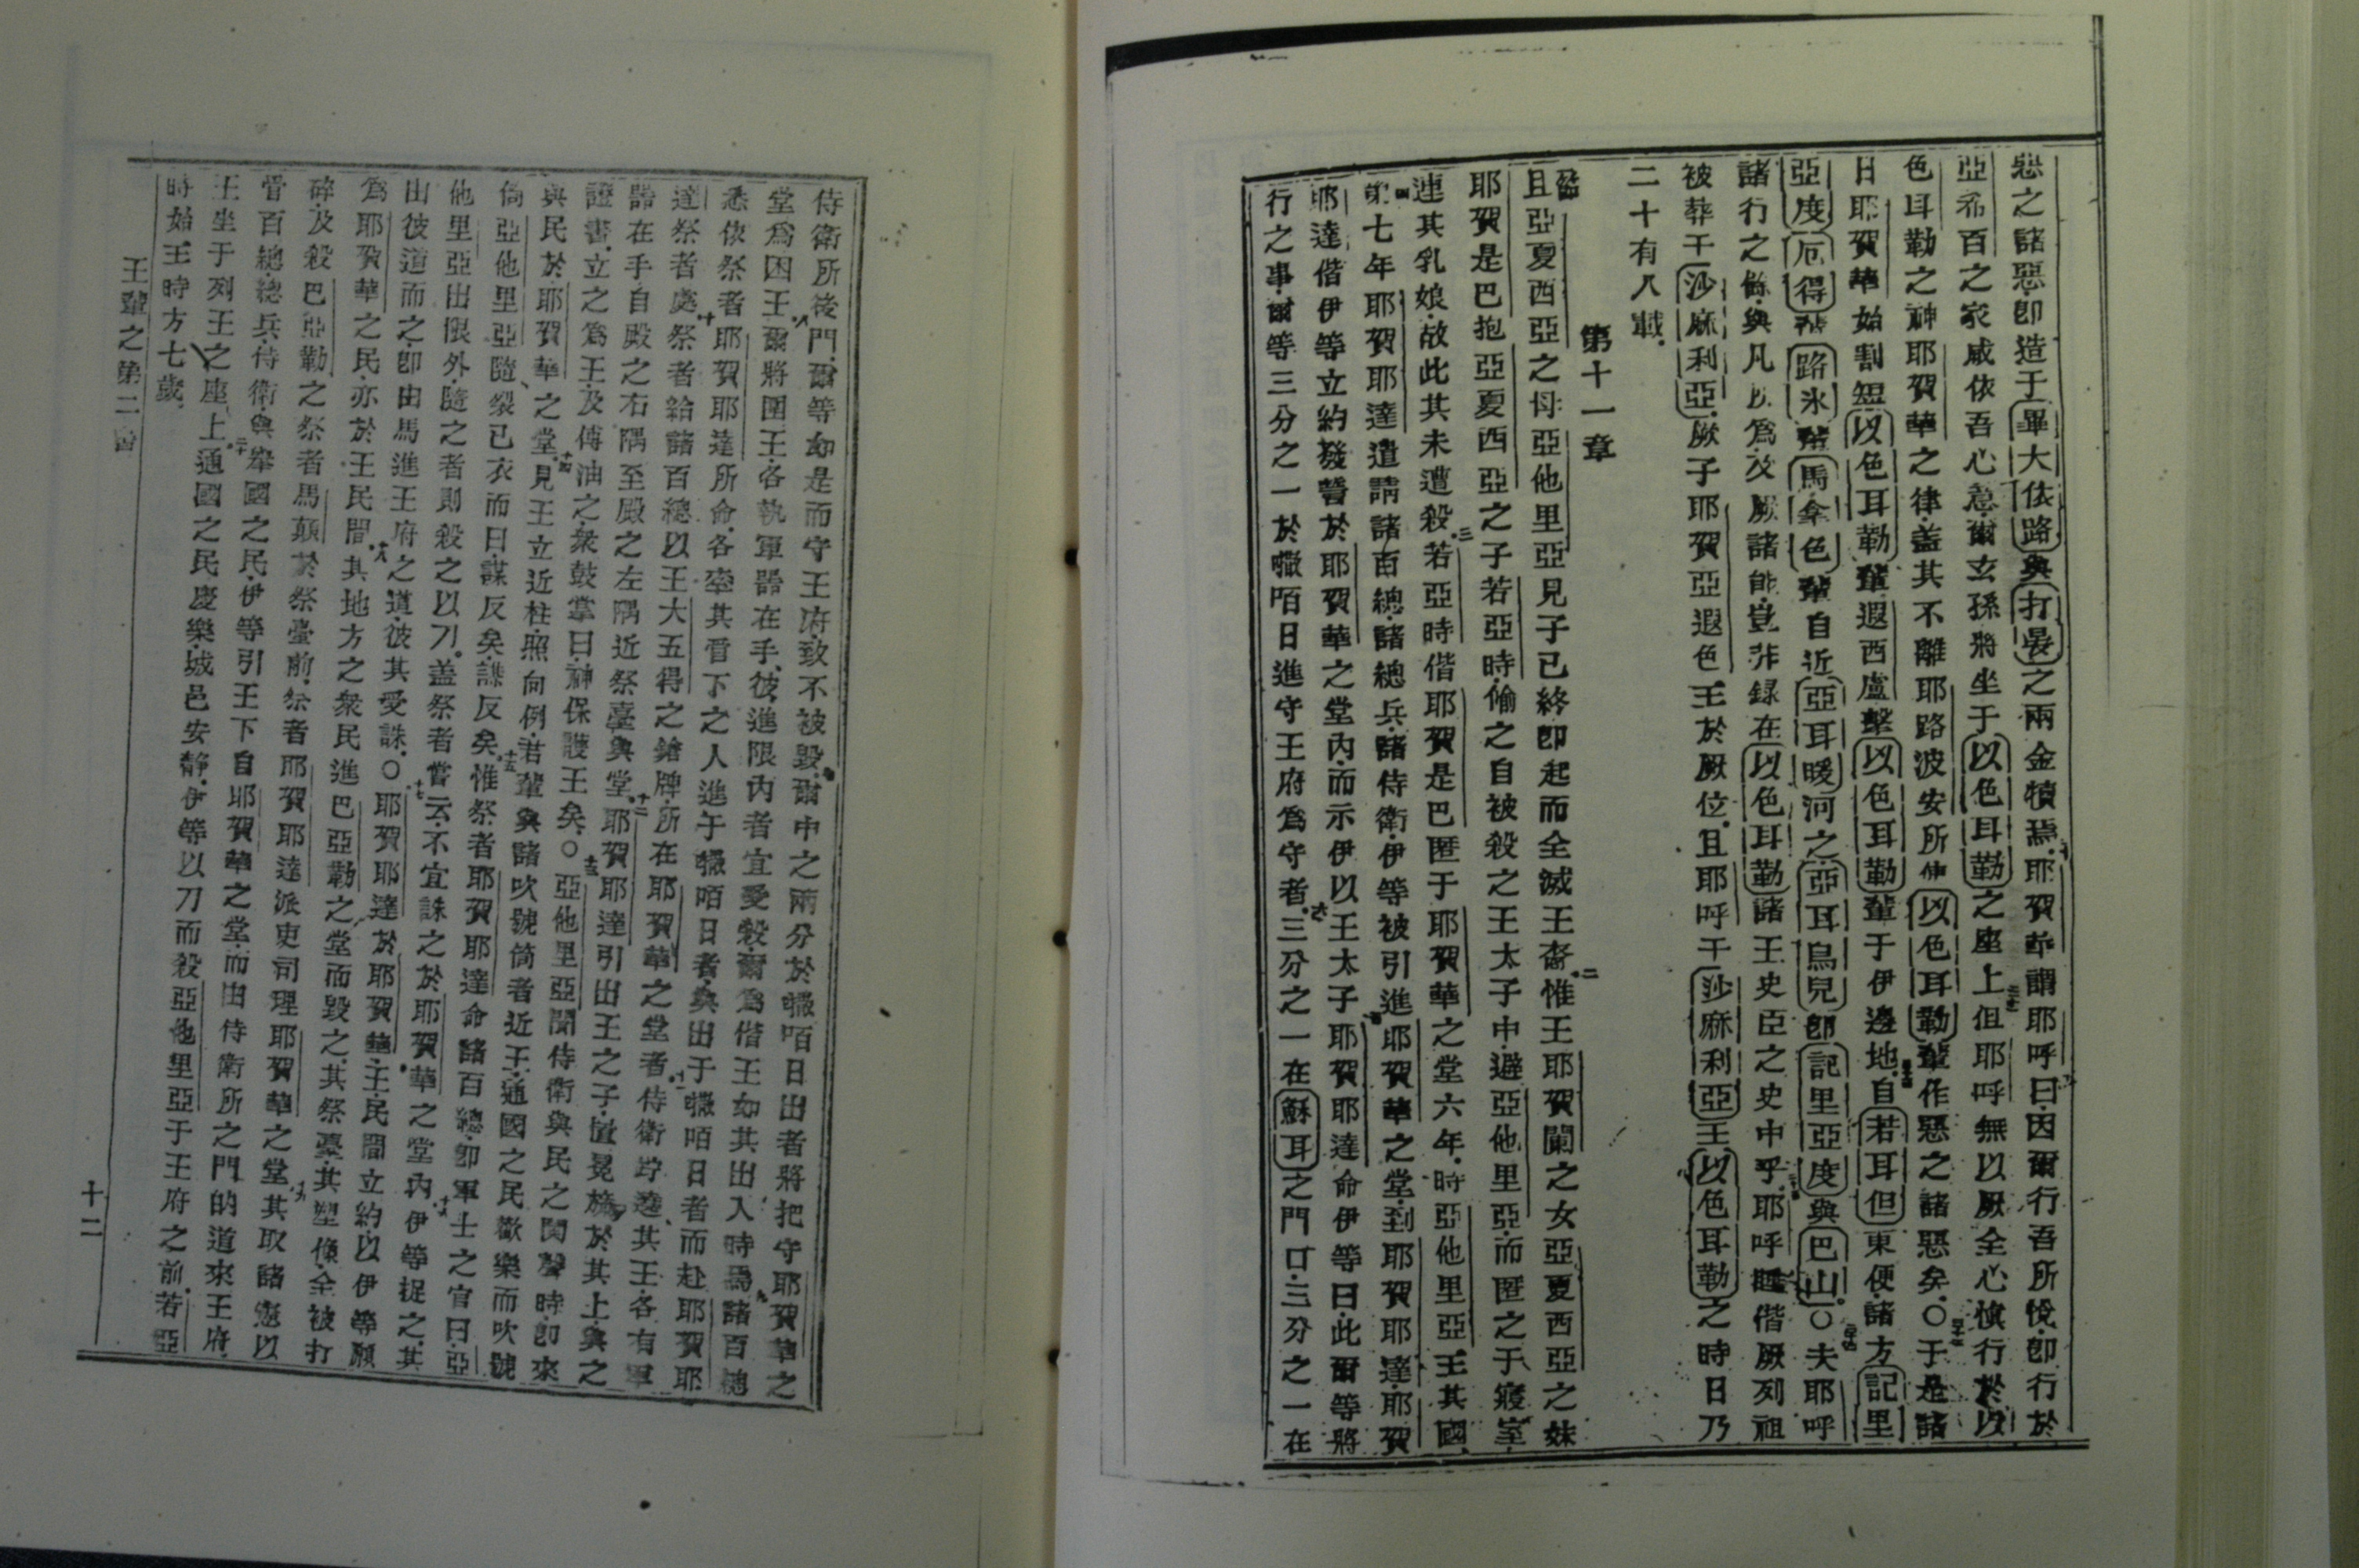 惡之諸惡卽造于畢大依路與打晏之兩金犢焉三十耶賀華謂耶呼曰因爾行吾所悅卽行於
亞希百之家咸依吾心意爾玄孫將坐于以色耳勒之座上三十一但耶呼無以厥全心愼行於以
色耳勒之神耶賀華之律蓋其不離耶路波安所使以色耳勒輩作惡之諸惡矣○三十二于是諸
日耶賀華始割短以色耳勒輩遐西盧擊以色耳勒輩于伊邊地三十三自若耳但東便諸方記里
亞度厄得輩路氷輩馬拿色輩自近亞耳暖河之亞耳鳥兒卽記里亞度與巴山○三十四夫耶呼
諸行之餘與凡所爲及厥諸能豈非錄在以色耳勒諸王史臣之史中乎三十五耶呼睡偕厥列祖
被葬于沙麻利亞厥子耶賀亞遐色王於厥位且耶呼于沙麻利亞王以色耳勒之時日乃
二十有八載
第十一章
且亞夏西亞之母亞他里亞見子已終卽起而全滅王裔二惟王耶賀闌之女亞夏西亞之妹
耶賀是巴抱亞夏西亞之子若亞時偷之自被殺之王太子中避亞他里亞而匿之于寢室
連其乳娘故此其未遭殺三若亞時偕耶賀是巴匿于耶賀華之堂六年時亞他里亞王其國
四第七年耶賀耶達遣請諸百總諸總兵諸侍衛伊等被引進耶賀華之堂到耶賀耶達耶賀
耶達偕伊等立約發誓於耶賀華之堂內而示伊以王太子五耶賀耶達命伊等曰此爾等將
行之事爾等三分之一於嗽咟日進守王府爲守者六三分之一在穌耳之門口三分之一在
侍衛所後門爾等如是而守王府致不被毀七爾中之兩分於嗽咟日出者將把守耶賀華之
堂爲困王八爾將圍王各執軍器在手彼進限內者宜受殺爾爲偕王如其出入時焉九諸百總
悉依祭者耶賀耶達所命各率其管下之人進于嗽咟日者與出于嗽咟日者而赴耶賀耶
達祭者處十祭者給諸百總以王大五得之鎗牌所在耶賀華之堂者十一侍衛竚遶其王各有軍
器在手自殿之右隅至殿之左隅近祭臺與堂十二耶賀耶達引出王之子置冕旒於其上與之
證書立之爲王及傅油之衆鼓掌曰神保護王矣○十三亞他里亞聞侍衛與民之鬨聲時卽來
與民於耶賀華之堂十四見王立近柱照向例君輩與諸吹號筒者近王通國之民歡樂而吹號
倘亞他里亞隨裂己衣而曰謀反矣謀反矣十五惟祭者耶賀耶達命諸百總卽軍士之官曰亞
他里亞出限外隨之者則殺之以刀蓋祭者嘗云不宜誅之於耶賀華之堂內十六伊等捉之其
由彼道而之卽由馬進王府之道彼其受誅○十七耶賀耶達於耶賀華王民間立約以伊等願
爲耶賀華之民亦於王民間十八其地方之衆民進巴亞勒之堂而毀之其祭臺其塑像全被打
碎及殺巴亞勒之祭者馬顛於祭臺前祭者耶賀耶達派吏司理耶賀華之堂十九其取諸憲以
管百總總兵侍衛與舉國之民伊等引王下自耶賀華之堂而由侍衛所之門的道來王府
王坐于列王之座上二十通國之民慶樂城邑安靜伊等以刀而殺亞他里亞于王府之前若亞
時始王時方七歲
王輩之第二書
十二